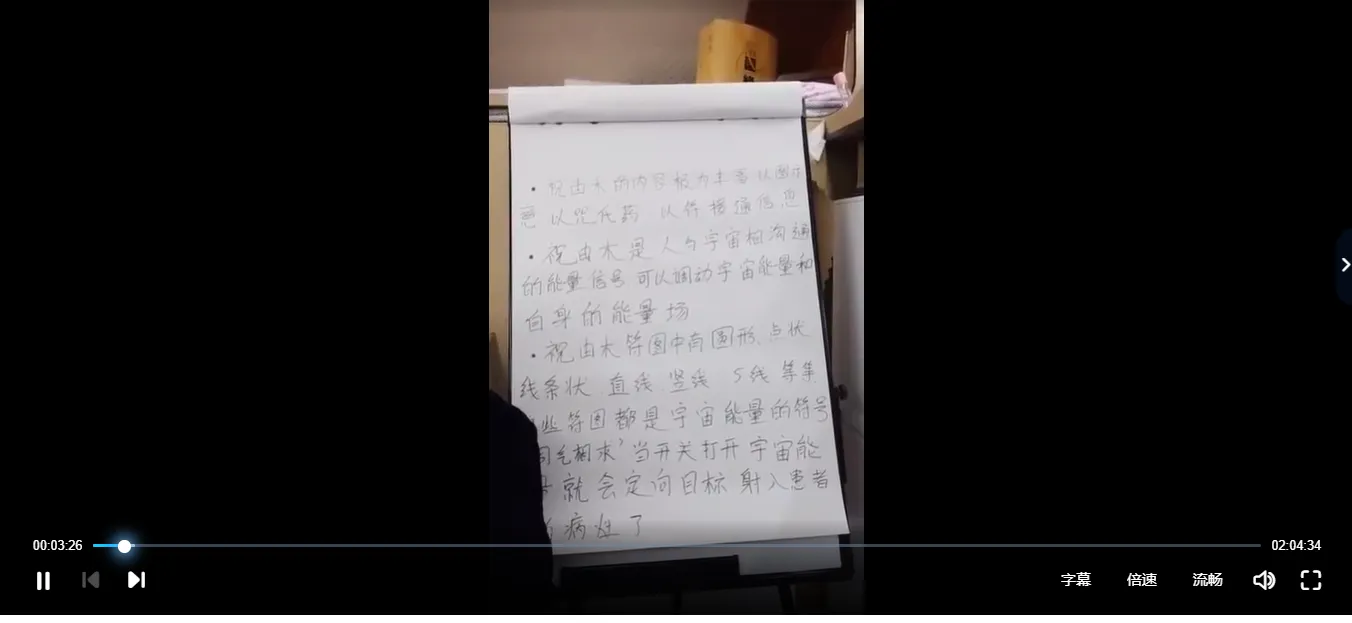 • 祝由术的内容极为丰富以图示
意 以咒代药 以符接通信息
• 祝由术是人与宇宙相沟通
的能量信号 可以调动宇宙能量和
自身的能量场
• 祝由术符图中有圆形、点状
线条状 直线 竖线 S线 等等
些符图都是宇宙能量的符号
同气相求”当开关打开宇宙能
就会定向目标射入患者
病灶了
00:03:26
02:04:34
字幕 倍速 流畅